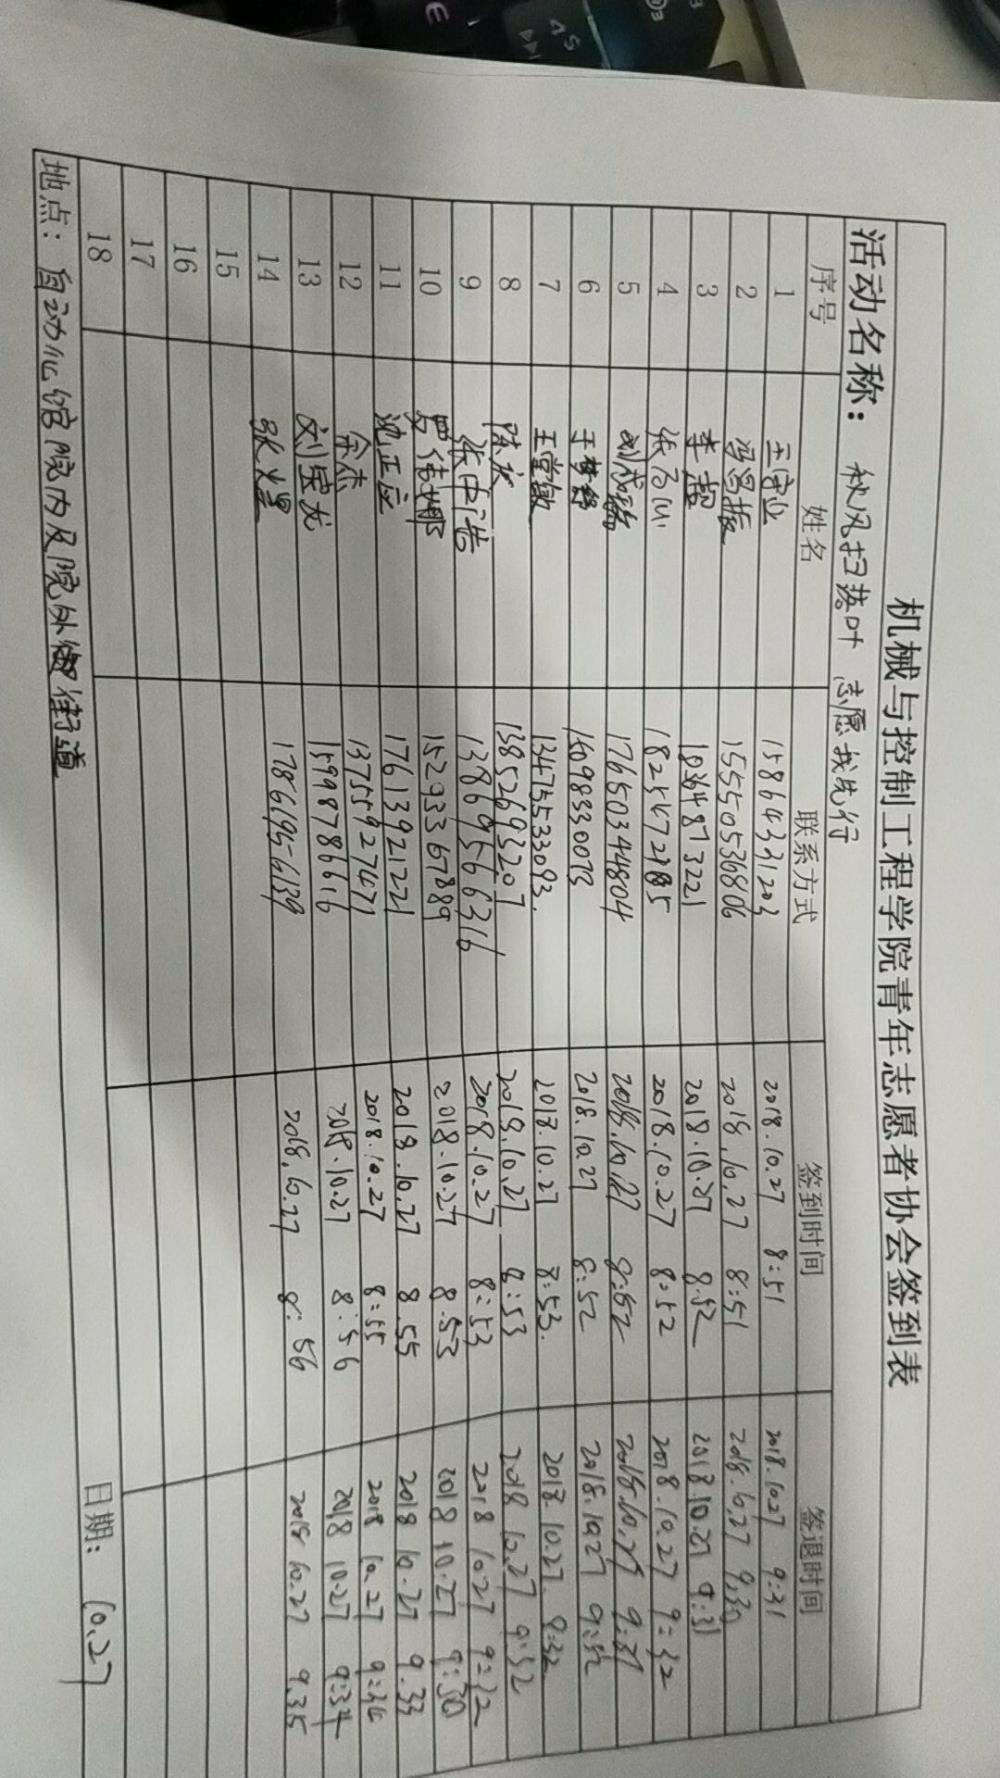 机械与控制工程学院青年志愿者协会签到表
活动名称： 秋风扫落叶 志愿我先行
序号 姓名 联系方式 签到时间 签退时间
1 15864331203 2018.10.27 8:51 2018.10.27 9:31
2 15550536806 2018.10.27 8:51 2018.10.27 9:30
3 李超 2018.10.27 8.52 2018.10.27 9:31
4 2018.10.27 8:52 2018.10.27 9:32
5 17650344804 2018.10.27 8:52 2018.10.27 9:31
6 王梦舒 2018.10.27 8:52 2018.10.27 9:32
7 13475533093. 2018.10.27 8:53. 2018.10.27 9:32
8 13852693207 2018.10.27 8:53 2018 10.27 9:32
9 13869566316 2018.10.27 8:53 2018 10.27 9:32
10 15293367889 2018.10.27 8.53 2018 10.27 9:30
11 沈正应 17613921221 2018.10.27 8.55 2018 10.27 9.33
12 余杰 13755927671 2018.10.27 8:55 2018 10.27 9:34
13 刘宝龙 15998786616 2018.10.27 8:56 2018 10.27 9:34
14 张煜 17866956139 2018.10.27 8:56 2018 10.27 9.35
15
16
17
18
地点：自动化馆院内及院外街道 日期： 10.27